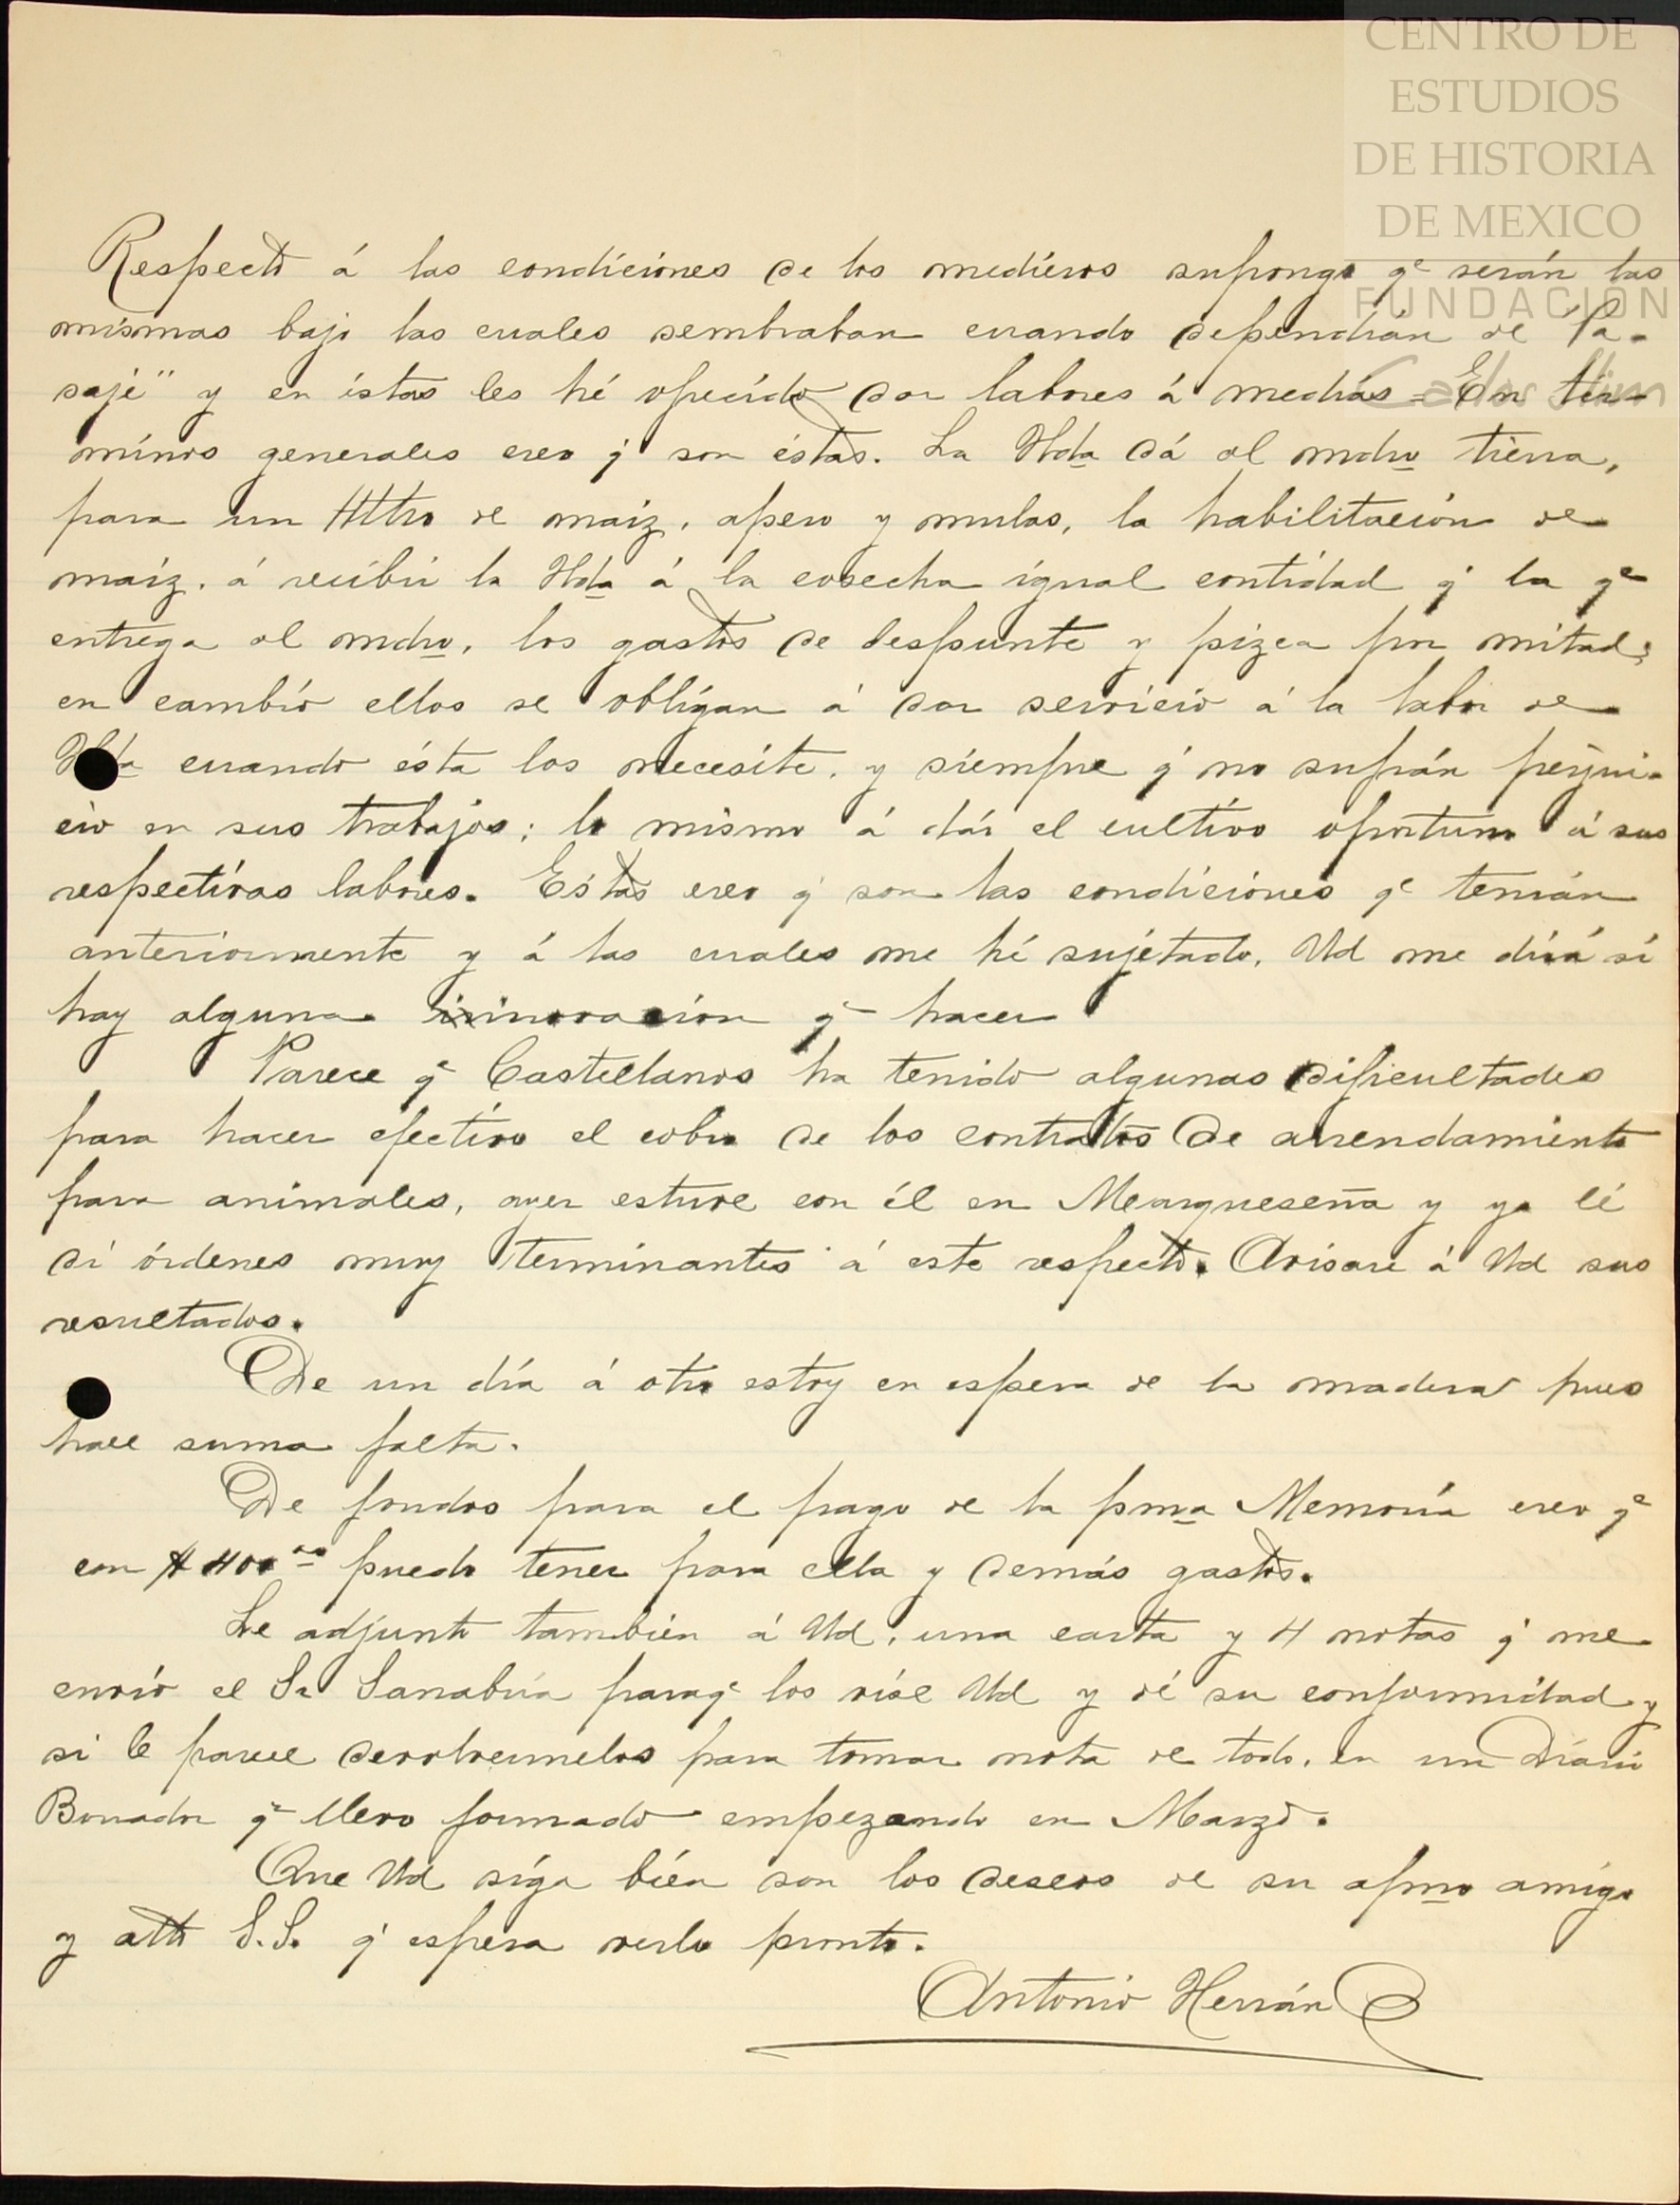 CENTRO DE
ESTUDIOS
DE HISTORIA
DE MEXICO
FUNDACIÓN
Carlos Slim
Respecto á las condiciónes de los mediéros supongo qe serán las
mísmas bajo las cuales sembraban cuando dependían de "Pa-
saje" y en éstas les hé ofrecído dar labores á medias = En tér-
mínos generales creo q' son éstas. La Hda dá al mdro tierra,
para un Httro de maíz, apero y mulas, la habilitación de
maíz, á recibir la Hda á la cosecha igual cantídad q' la qe
entrega al mdro, los gastos de despunte y pizca por mitad;
en cambío ellos se oblígan á dar servicio á la labor de
Hda cuando ésta los necesíte, y siempre q' no sufrán perjui-
cio en sus trabajos; lo mismo á dár el cultívo oportuno á sus
respectívas labores. Estas creo q' son las condiciónes qe tenían
anteriormente y á las cuales me hé sujetado, Ud me dirá sí
hay alguna innovación qe hacer
Parece qe Castellanos ha tenido algunas dificultades
para hacer efectivo el cobro de los contratos de arrendamiento
para animales, ayer estuve con él en Marqueseña y ya lé
dí órdenes muy terminantes á este respecto. Avisaré á Ud sus
resultados.
De un día á otro estoy en espera de la madera pues
hace suma falta.
De fondos para el pago de la pma Memoría creo qe
con $400.oo puedo tener para ella y demás gastos.
Le adjunto también á Ud, una carta y 4 notas q' me
envió el Sr Sanabria paraqe los vise Ud y dé su conformidad y
si le parece devolvermelos para tomar nota de todo, en un Diario
Borrador qe llevo formado empezando en Marzo.
Que Ud síga bién son los deseos de su afmo amígo
y atto S.S. q' espera verlo pronto.
Antonio Herrán